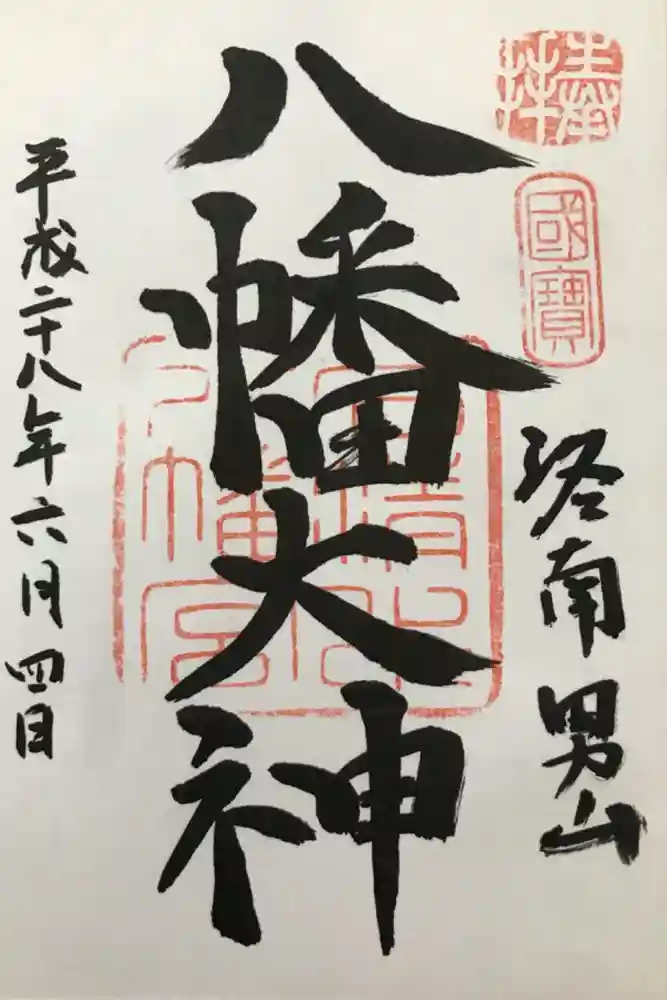 奉拝
國寶
洛南男山
八幡大神
石清水
八幡宮
平成二十八年六月四日